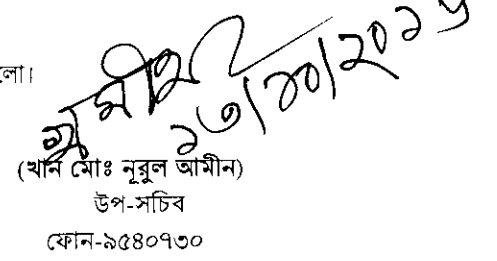 লো।
১৩/১০/২০১৮
(খান মোঃ নূরুল আমীন)
উপ-সচিব
ফোন-৯৫৪০৭৩০